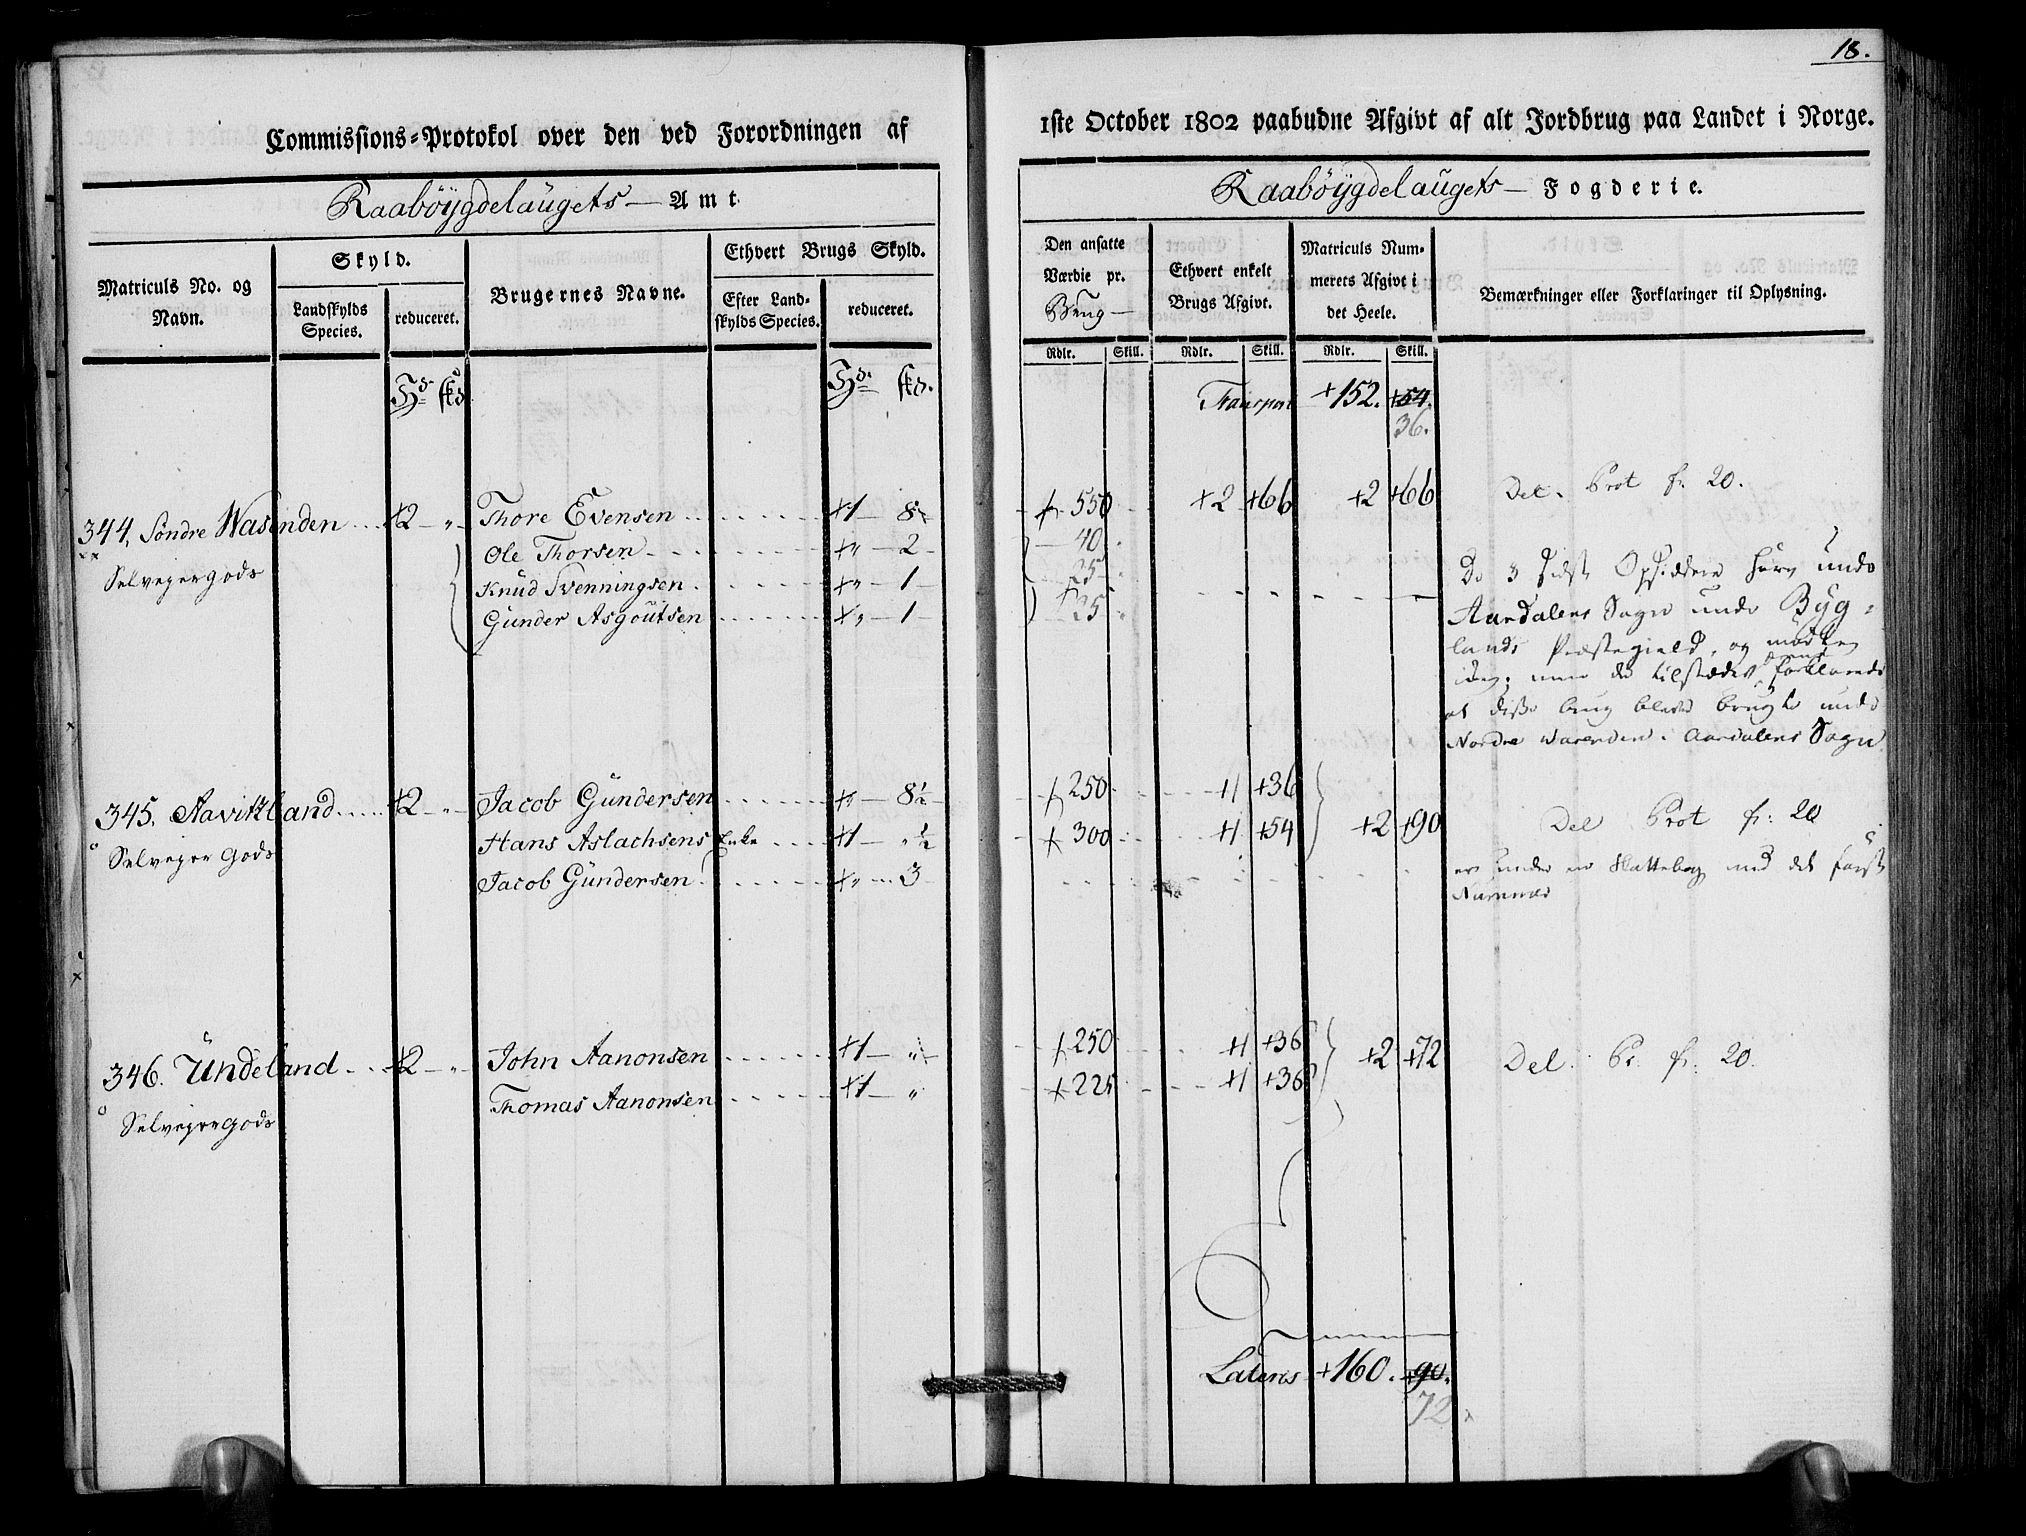 18.
Commissions-Protokol over den ved Forordningen af
1ste October 1802 paabudne Afgivt af alt Jordbrug paa Landet i Norge.
Raabøygdelaugets — Amt
Raabøygdelaugets — Fogderie.
Matriculs No. og Navn.
Skyld.
Landskylds Species.
reduceret.
Brugernes Navne.
Ethvert Brugs Skyld.
Efter Landskylds Species.
reduceret.
Den ansatte Værdie pr. Brug —
Ethvert enkelt Brugs Afgivt.
Matriculs Nummerets Afgivt i det Heele.
Bemærkninger eller Forklaringer til Oplysning.
Rdlr. Skill. Rdlr. Skill. Rdlr. Skill.
Hd. skd. Hd. skd.
Transport +152. +54.
36.
344. Søndre Wasenden .. +2 — „ — Thore Evensen ..... +1 — 8 — + 550 +2 +66 +2 +66 Del. Prot fr. 20.
Selvejergods
Ole Thorsen ..... +„ — 2 — 40
Knud Svenningsen . +„ — 1 — 25
Gunder Asgoutsen ..... +„ — 1 — 35
De 3 sidste Opsiddere høre under
Aardalens Sogn under Byg=
lands Præstegield, og mødte
men de tilstædeværende forklarede
at disse brug bleve brugte under
Nordre Wasenden i Aardalens Sogn
345. Aavikland ..... +2 — „ — Jacob Gundersen ..... +„ — 8½ — + 250 +1 +36
Selvejer Gods
Hans Aslachsens Enke ... +1 — „ ½ + 300 +1 +54 +2 +90 Del Prot fr: 20
Jacob Gundersen ..... +„ — 3
er under en Skattebog med det første
Nummer
346. Undeland ... +2 — „ — John Aanonsen ..... +1 — „ — + 250 +1 +36 +2 +72 Del. Pr. fr. 20.
Selvejergods
Thomas Aanonsen ..... +1 — „ + 225 +1 +36
Lateris +160. +90.
72